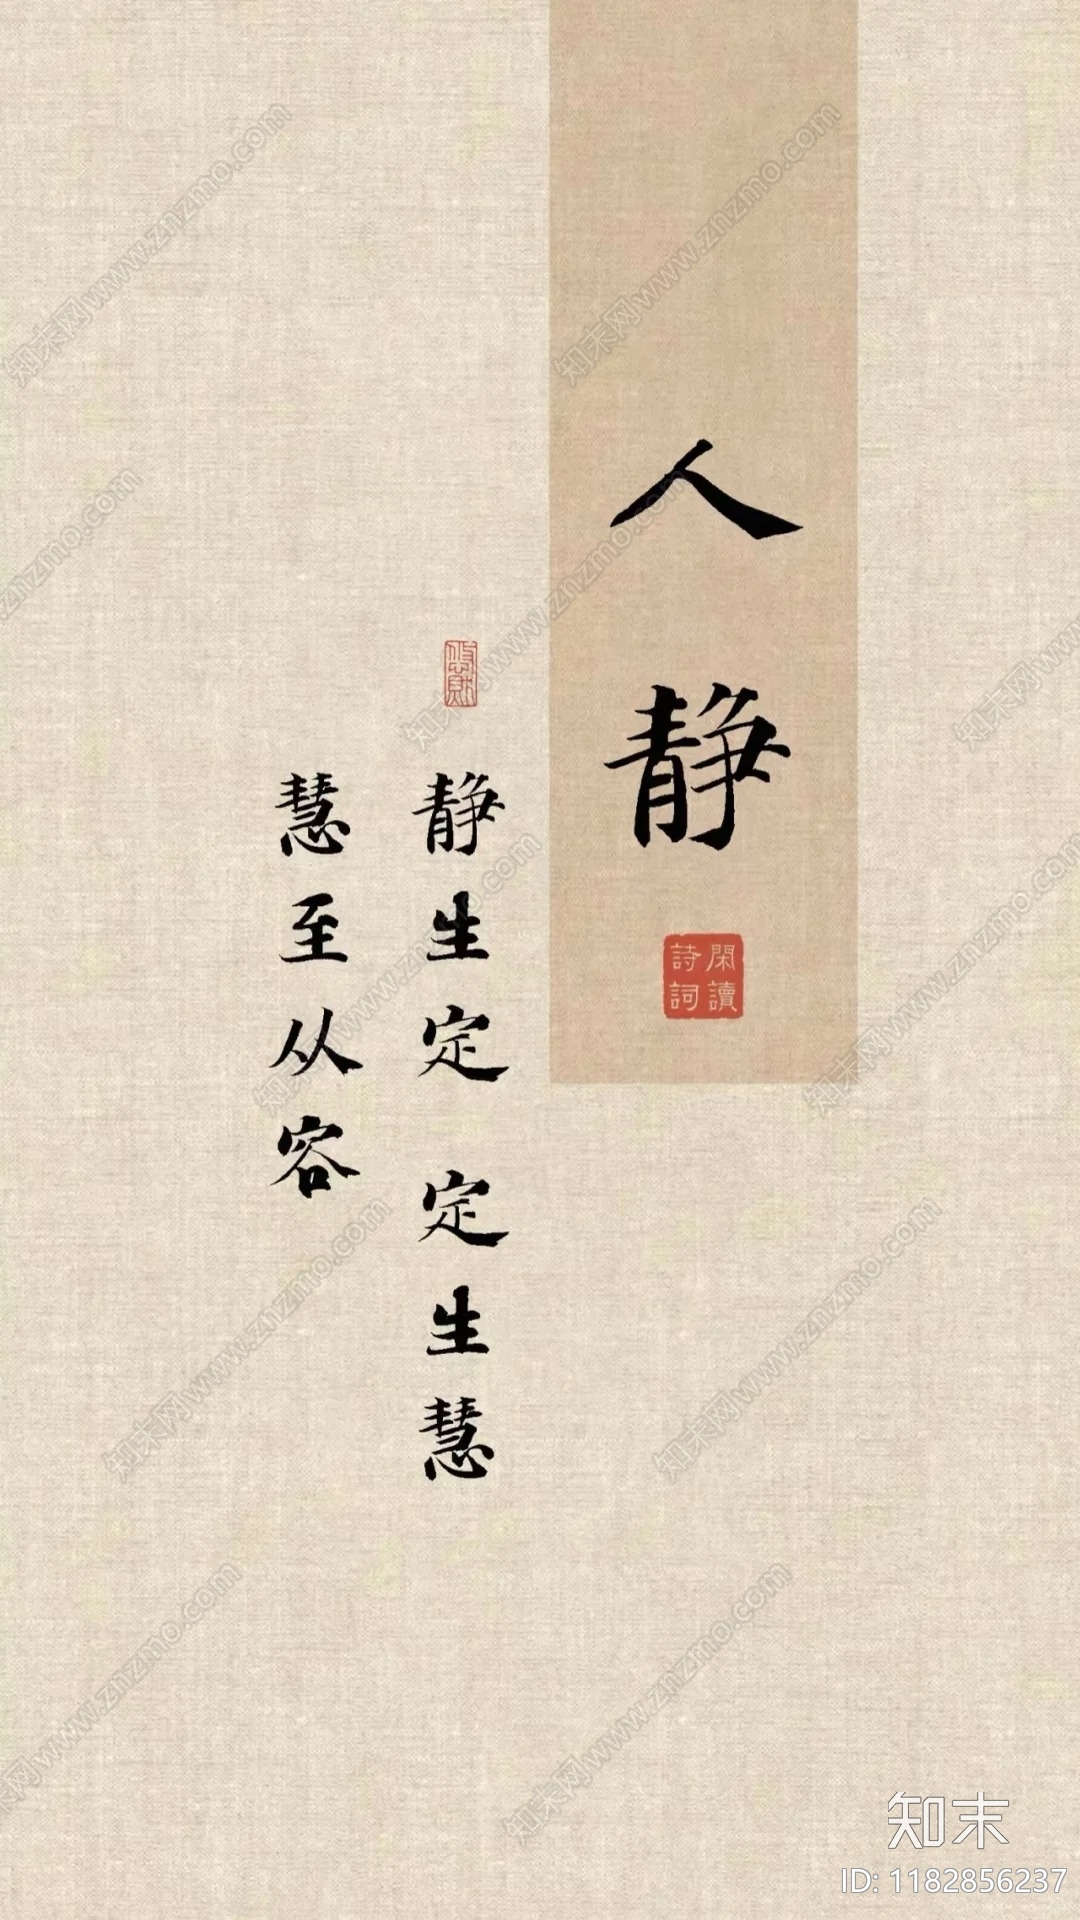 人静
閑讀
詩詞
静生定 定生慧
慧至从容
知末
ID: 1182856237
知末网www.znzmo.com